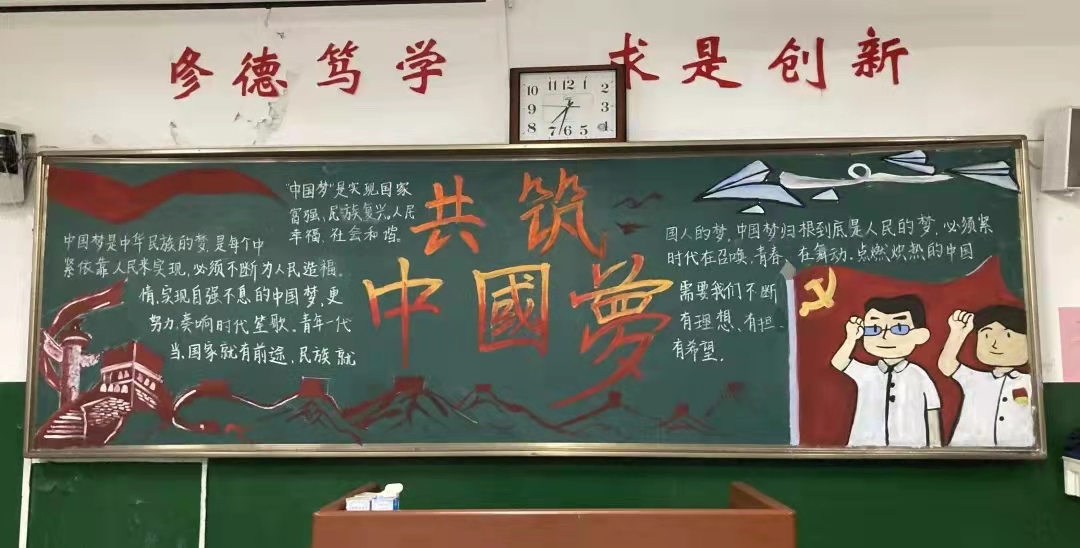 修德笃学 求是创新
10 11 12 1 2
9 3
8 7 6 5 4
共筑
中國夢
"中国梦"是实现国家
富强、民族复兴、人民
幸福、社会和谐。
中国梦是中华民族的梦,是每个中
紧依靠人民来实现,必须不断为人民造福。
情,实现自强不息的中国梦,更
努力,奏响时代笙歌。青年一代
当,国家就有前途,民族就
国人的梦。中国梦归根到底是人民的梦,必须紧
时代在召唤,青春在舞动,点燃炽热的中国
需要我们不断
有理想、有担
有希望。